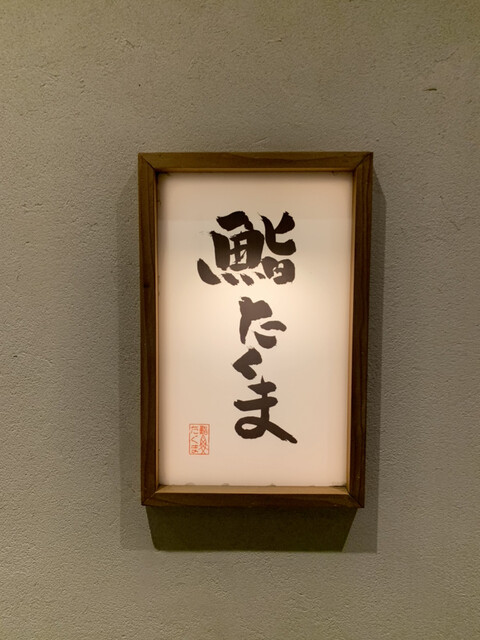 鮨たくま
たくま